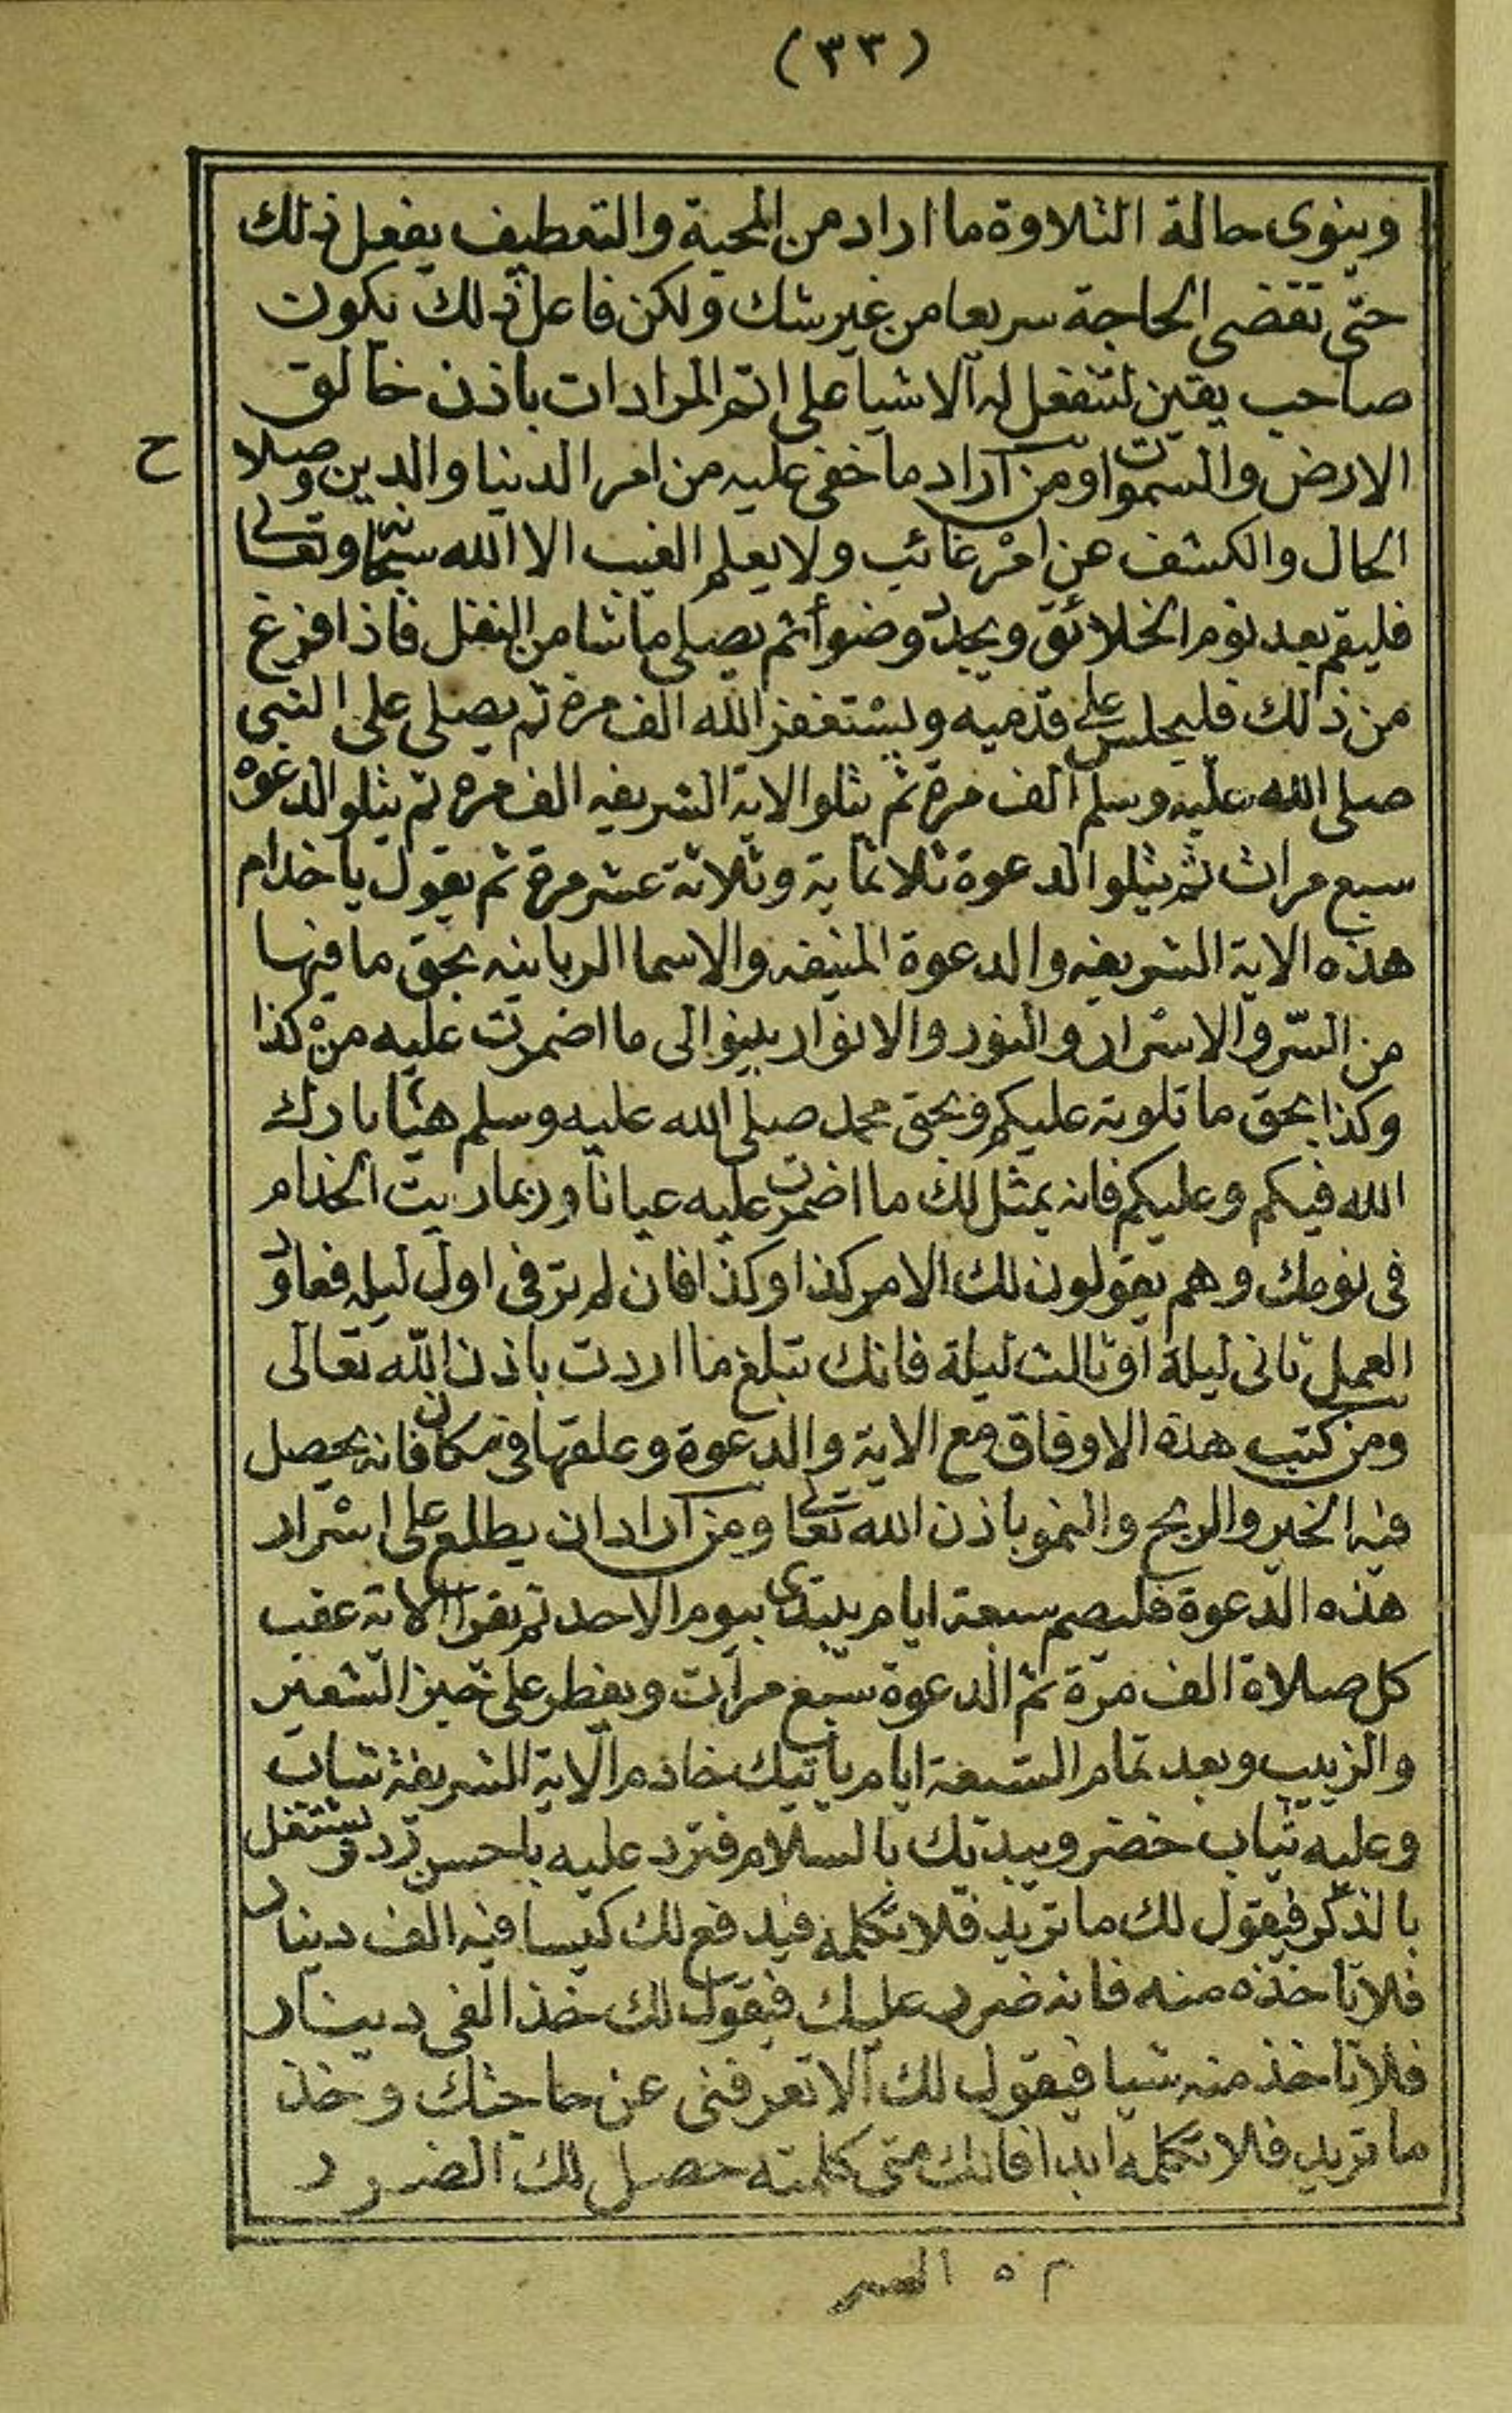 (٣٣)
وينوى حالة التلاوة ما اراد من المحبة والتعطيف يفعل ذلك
حتى تقضى الحاجة سريعا من غير شك ولكن فاعل ذلك يكون
صاحب يقين لتنفعل له الاشيا على اتم المرادات باذن خالق
الارض والسموات ومن اراد ما خفى عليه من امر الدنيا والدين وصلاح
الحال والكشف عن امر غائب ولا يعلم الغيب الا الله سبحانه وتعالى
فليقم بعد نوم الخلائق ويجدد وضوأ ثم يصلى ما شا من النفل فاذا فرغ
من ذلك فليجلس على قدميه ويستغفر الله الف مرة ثم يصلى على النبى
صلى الله عليه وسلم الف مرة ثم يتلوا الاية الشريفه الف مره ثم يتلو الدعوه
سبع مرات ثم يتلوا الدعوة ثلاثماية وثلاثة عشر مرة ثم يقول يا خدام
هذه الاية الشريفه والدعوة المنيفه والاسما الربانيه بحق ما فيها
من السر والاسرار والنور والانوار بينوا لى ما اضمرت عليه من كذا
وكذا بحق ما تلوته عليكم وبحق محمد صلى الله عليه وسلم هيا بارك
الله فيكم وعليكم فانه يمثل لك ما اضمرت عليه عيانا وربما ريت الخدام
فى نومك وهم يقولون لك الامر كذا وكذا فان لم تر فى اول ليله فعاود
العمل ثانى ليلة او ثالث ليلة فانك تبلغ ما اردت باذن الله تعالى
ومن كتب هذه الاوفاق مع الاية والدعوة وعلقها فى مكان فانه يحصل
فيه الخير والربح والنمو باذن الله تعالى ومن اراد ان يطلع على اسرار
هذه الدعوة فليصم سبعة ايام يبتدى بيوم الاحد ثم يقرا الاية عقب
كل صلاة الف مرة ثم الدعوة سبع مرات ويفطر على خبز الشعير
والزبيب وبعد تمام السبعة ايام ياتيك خادم الاية الشريفة شاب
وعليه ثياب خضر ويبديك بالسلام فترد عليه باحسن رد وتشتغل
بالذكر فيقول لك ما تريد فلا تكلمه فيدفع لك كيسا فيه الف دينار
فلا تاخذه منه فانه ضرر عليك فيقول لك خذ الفى دينار
فلا تاخذ منه شيا فيقول لك الا تعرفنى عن حاجتك وخذ
ما تريد فلا تكلمه ابدا فانك متى كلمته حصل لك الضرر
م ٥